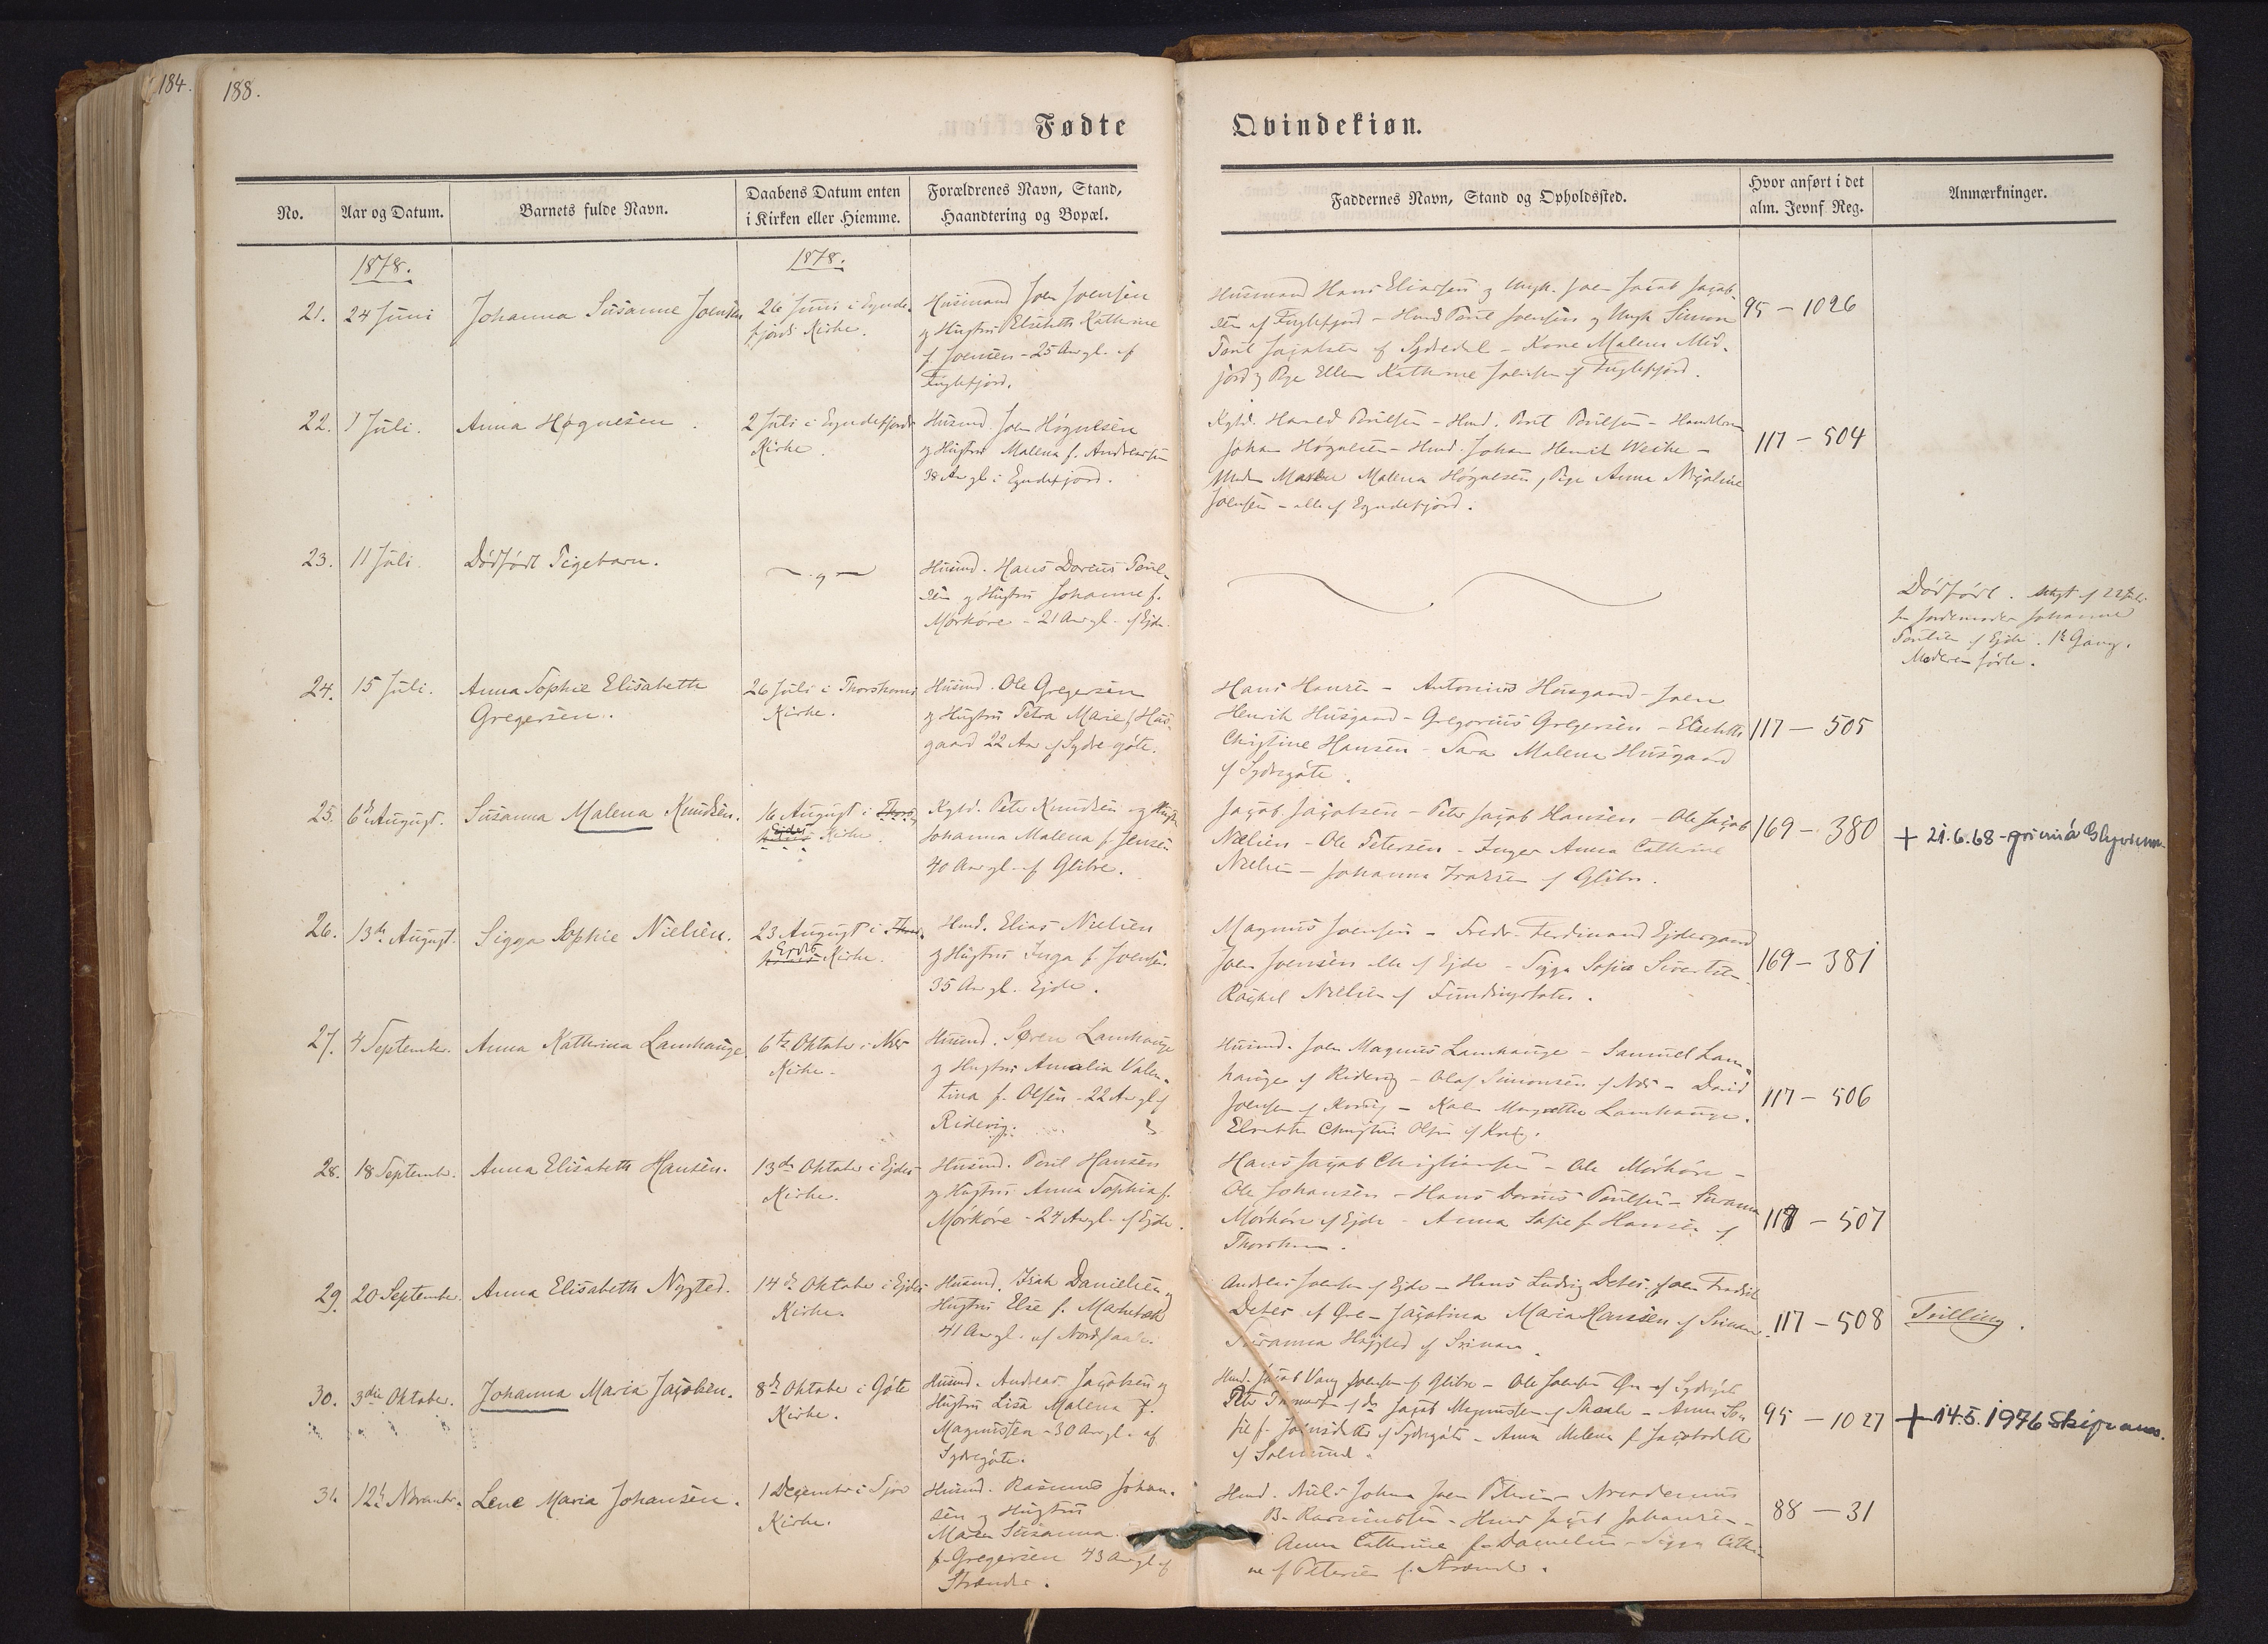 184.
188.
Fødte
Qvindekiøn.
No.
Aar og Datum.
Barnets fulde Navn.
Daabens Datum enten
i Kirken eller Hiemme.
Forældrenes Navn, Stand,
Haandtering og Bopæl.
Faddernes Navn, Stand og Opholdssted.
Hvor anført i det
alm. Jevnf. Reg.
Anmærkninger.
1878.
1878.
21.
24 Juni
Johanna Susanne Joensen
26 Juni i Eynde-
fjords Kirke.
Husmand Joen Joensen
og Hustru Elsebeth Kathrine
f. Joensen - 25 Aar gl. af
Fuglefjord.
Husmand Hans Eliassen og Ungk. Joen Jacob Jacob-
sen af Fuglefjord - Husmd Poul Joensen og Ungk Simon
Poul Jacobsen af Sydredal - Kone Malene Mid-
jord og Pige Ellen Kathrine Joensen af Fuglefjord.
95 - 1026
22.
1 Juli.
Anna Høgnesen
2 Juli i Eyndefjords
Kirke.
Husmd. Joen Høgnesen
og Hustru Malena f. Andreassen
38 Aar gl. i Eyndefjord.
Kgbd. Harald Poulsen - Husmd. Poul Poulsen - Handlsm
Johan Høgnesen - Husmd. Johan Henrik Weihe -
Malena Høgnesen, Pige Anna Nicoline
Joensen - alle af Eyndefjord.
117 - 504
23.
11 Juli
Dødfødt Pigebarn.
Husmd. Hans Dorius Poul-
sen og Hustru Johanne f.
Mørkøre - 21 Aar gl. af Ejde.
Dødfødt. af 22 Juli
fra Jordemoder Johanne
Poulsen af Ejde. 1ste Gang.
Moderen fødte.
24.
15 Juli.
Anna Sophie Elisabeth
Gregersen.
26 Juli i Thorshavns
Kirke.
Husmd. Ole Gregersen
og Hustru Petra Marie f. Hus-
gaard 22 Aar af Sydregøte.
Hans Hansen - Antonius Husgaard - Joen
Henrik Husgaard - Gregorius Gregersen - Elsebeth
Christine Hansen - Sara Malene Husgaard
af Sydregøte.
117 - 505
25.
6te August.
Susanna Malena Knudsen.
16 August i Thors-
Ejdes Kirke.
Kgbd. Peter Knudsen og Hustru
Johanna Malena f. Jensen
40 Aar gl. af Glibre.
Jacob Jacobsen - Peter Jacob Hansen - Ole Jacob
Nielsen - Ole Petersen - Inger Anna Cathrine
Nielsen - Johanna Iraksen af Glibre.
169 - 380
+ 21.6.68 - grivin á Glyvrum.
26.
13de August.
Sigga Sophie Nielsen.
23 August i Thors-
Ejdes Kirke.
Husmd. Elias Nielsen
og Hustru Inga f. Joensen
35 Aar gl. Ejde.
Magnus Joensen - Fredr. Ferdinand Ejdesgaard
Joen Joensen alle af Ejde - Sigga Sofie Sivertsen
Rachel Nielsen af Fundingsbotn.
169 - 381
27.
4 September.
Anna Kathrina Lamhauge
6te Oktober i Nes
Kirke.
Husmd. Søren Lamhauge
og Hustru Amalia Valen-
tina f. Olsen - 22 Aar gl. af
Ridevig.
Husmd. Joen Magnus Lamhauge - Samuel Lam-
hauge af Ridevig - Olaf Simonsen af Nes - David
Joensen af - Margrethe Lamhauge.
117 - 506
28.
18 Septembr.
Anna Elisabeth Hansen.
13de Oktober i Ejdes
Kirke.
Husmd. Poul Hansen
og Hustru Anna Sophia f.
Mørkøre - 24 Aar gl. af Ejde.
Hans Jacob Christiansen - Ole Mørkøre -
Ole Johansen - Hans Dorius Poulsen - Susanna
Mørkøre af Ejde - Anna Sofie f. Hansen af
Thorshavn.
117 - 507
29.
20 September.
Anna Elisabeth Nygsted.
14de Oktober i Ejdes
Kirke.
Husmd. Isak Danielsen og
Hustru Else f.
41 Aar gl. af Nordskaale.
Andreas Joensen af Ejde - Hans Ludvig Debes - Joen Fredrik
Debes af Øre - Jacobina Maria Hansen af Svinaa
Susanna Højsted af Svinaa.
117 - 508
Tvilling.
30.
3die Oktober.
Johanna Maria Jacobsen.
8de Oktober i Gøte
Kirke.
Husmd. Andreas Jacobsen og
Hustru Lisa Malena f.
Magnussen - 30 Aar gl. af
Sydregøte.
Husmd. Jacob Vang Joensen af Glibre - Ole Joensen af Sydregøte
Jacob Magnussen af Skaale - Anna So-
fie f. af Sydregøte - Anna Malena f. Jacobsdatter
95 - 1027
+ 14.5.1976 Skipanes.
31.
12te Novembr.
Lene Maria Johansen.
1 December i Sjov
Kirke.
Husmd. Rasmus Johan-
sen og Hustru
Maren Susanna
f. Gregersen 43 Aar gl. af
Strænder.
Husmd. Niels Johan Joen Petersen
Rasmussen - Husmd Jacob Johansen -
Anna Cathrine f. Danielsen - Sigga Cathri-
ne f. Petersen
88 - 31